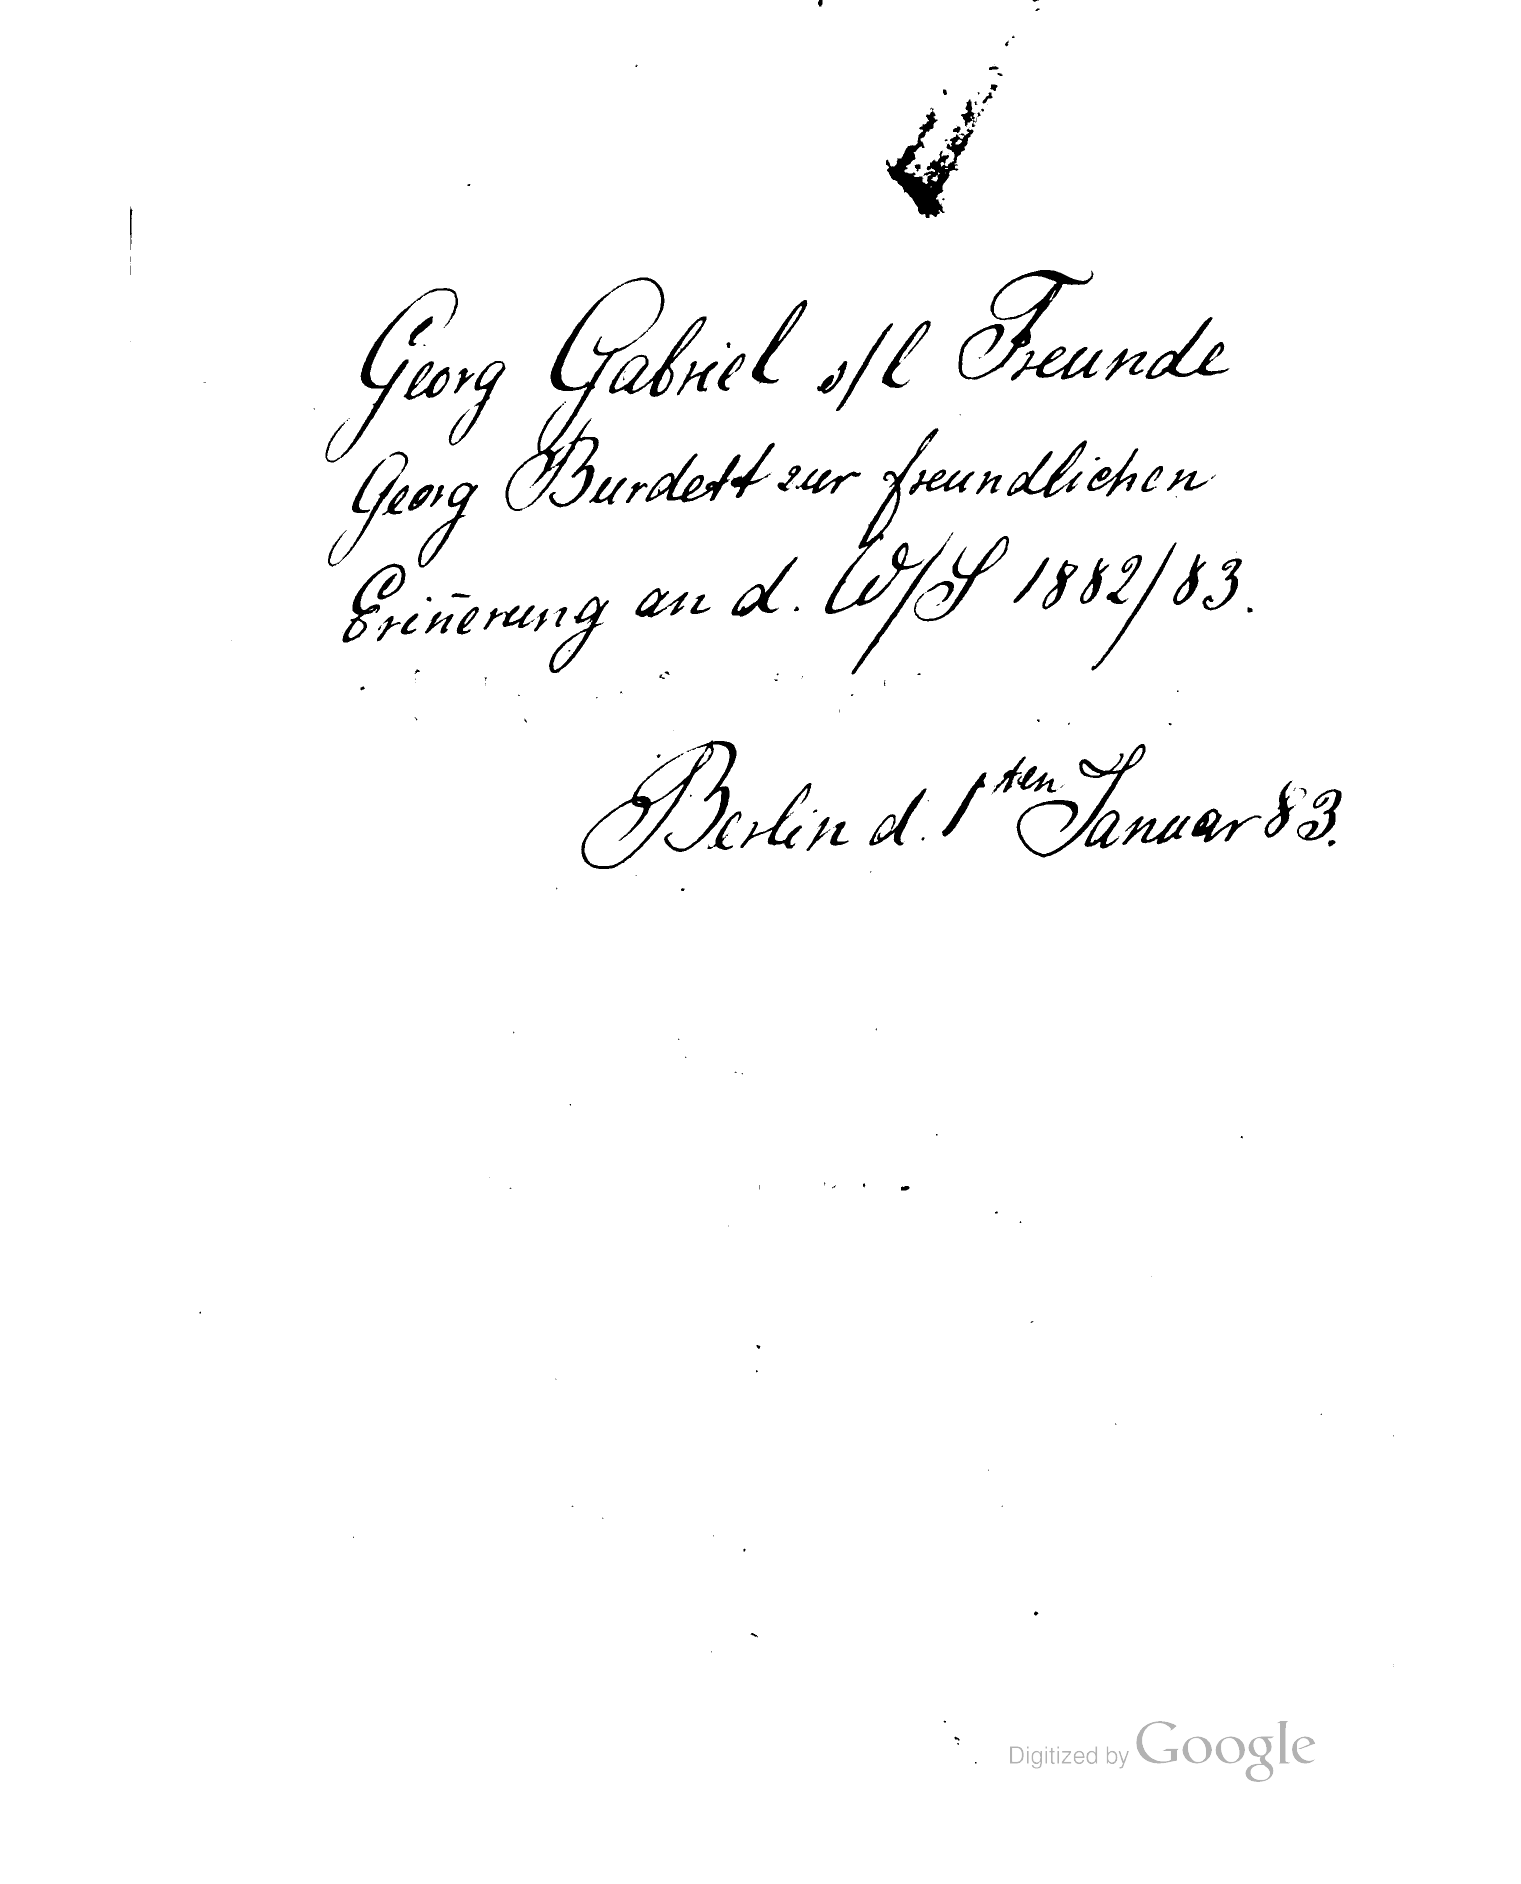 Georg Gabriel s/l Freunde
Georg Burdett zur freundlichen
Erin̄erung an d. W/S 1882/83.
Berlin d. 1ten Januar 83.
Digitized by Google